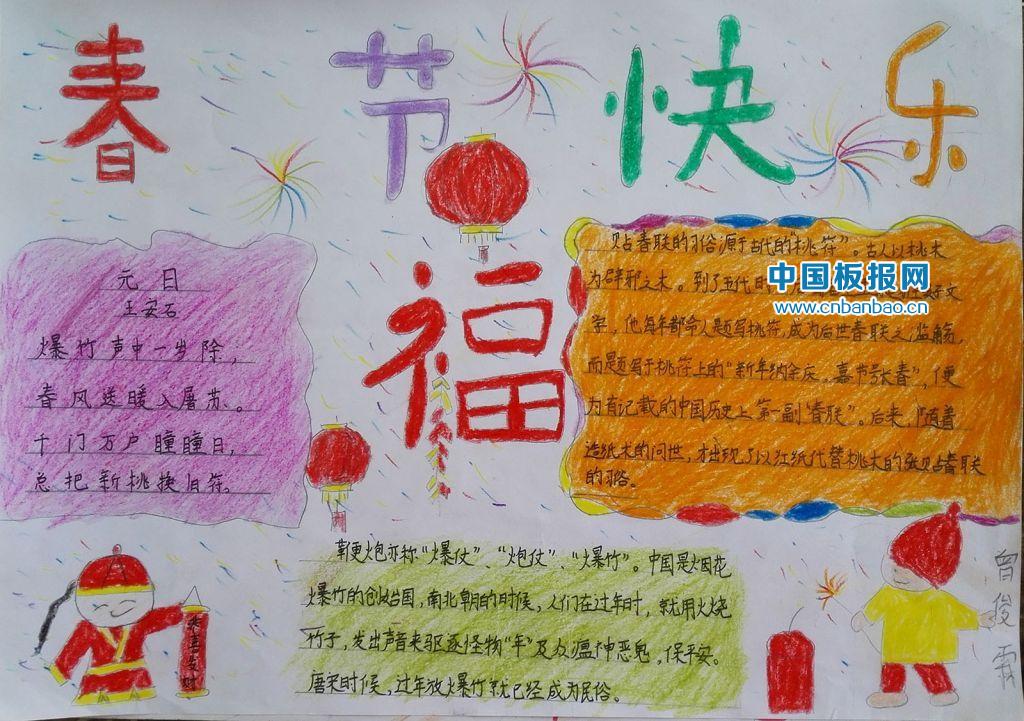 春节快乐
福
元日
王安石
爆竹声中一岁除,
春风送暖入屠苏。
千门万户瞳瞳日,
总把新桃换旧符。
贴春联的习俗源于古代的"桃符"。古人以桃木
为辟邪之木。到了五代时
文
学,他每年都命人题写桃符,成为后世春联之滥觞,
而题写于桃符上的"新年纳余庆。嘉节号长春",便
为有记载的中国历史上第一副"春联"。后来,随着
造纸术的问世,才出现了以红纸代替桃木的张贴春联
的习俗。
中国板报网
www.cnbanbao.cn
鞭炮亦称"爆仗"、"炮仗"、"爆竹"。中国是烟花
爆竹的创始国,南北朝的时候,人们在过年时,就用火烧
竹子,发出声音来驱逐怪物"年"及众瘟神恶鬼,保平安。
唐宋时候,过年放爆竹就已经成为民俗。
恭喜发财
曾俊霖